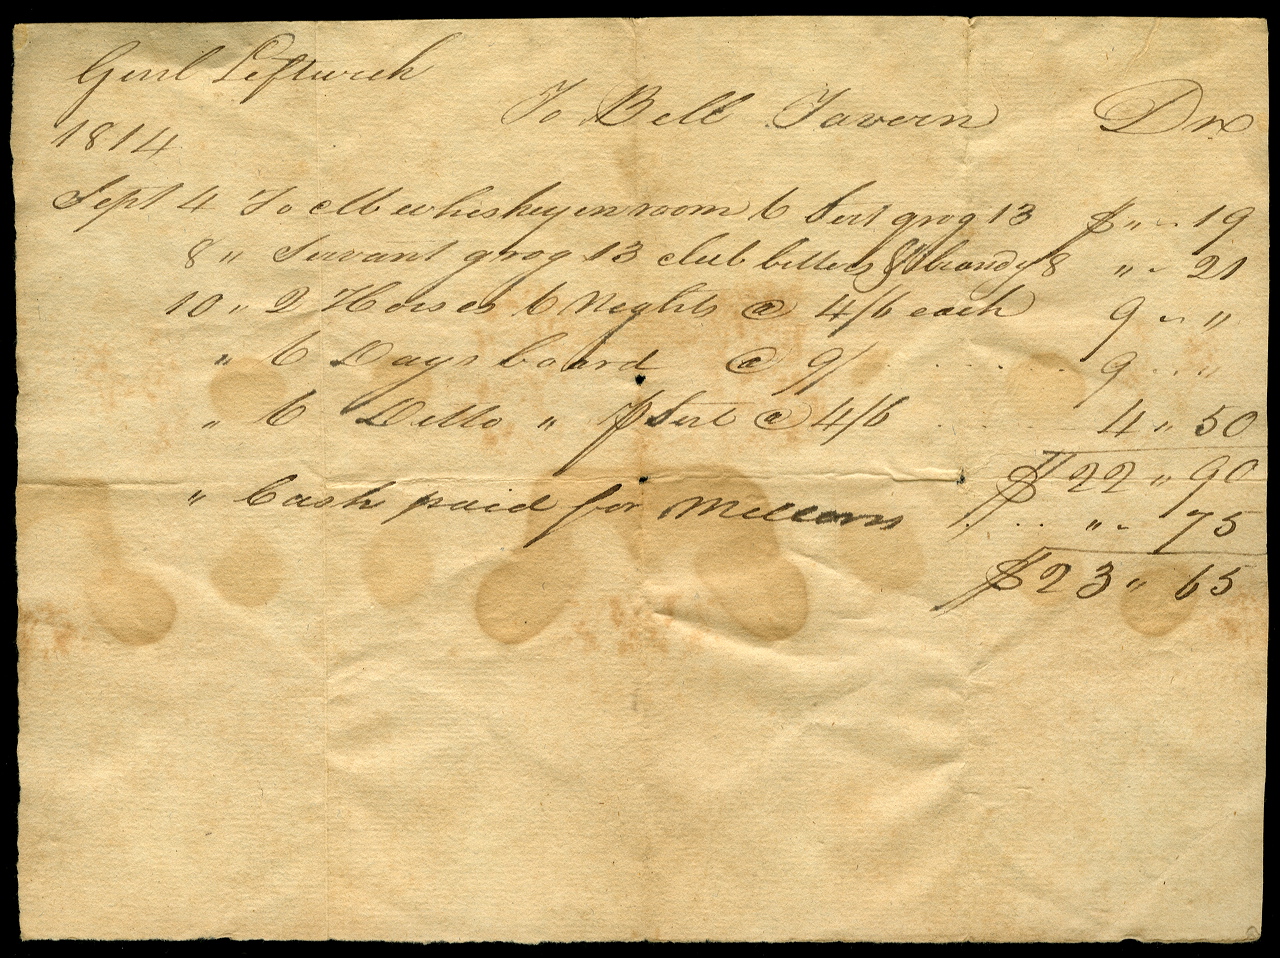 Genl Leftwich
To Bell Tavern Dr
1814
Sept 4 To whiskey in room 6 Sert grog 13 $ " - 19
8 " Servant grog 13 club bitters & brandy 8 " - 21
10 " 2 Horses 6 Neghts @ 4/6 each 9 - "
" 6 Days board @ 9/ . . . . . . 9 . . "
" 6 Ditto " Sert @ 4/6 . . . . 4 " 50
$ 22 " 90
" Cash paid for Mellons . . . " - 75
$ 23 " 65